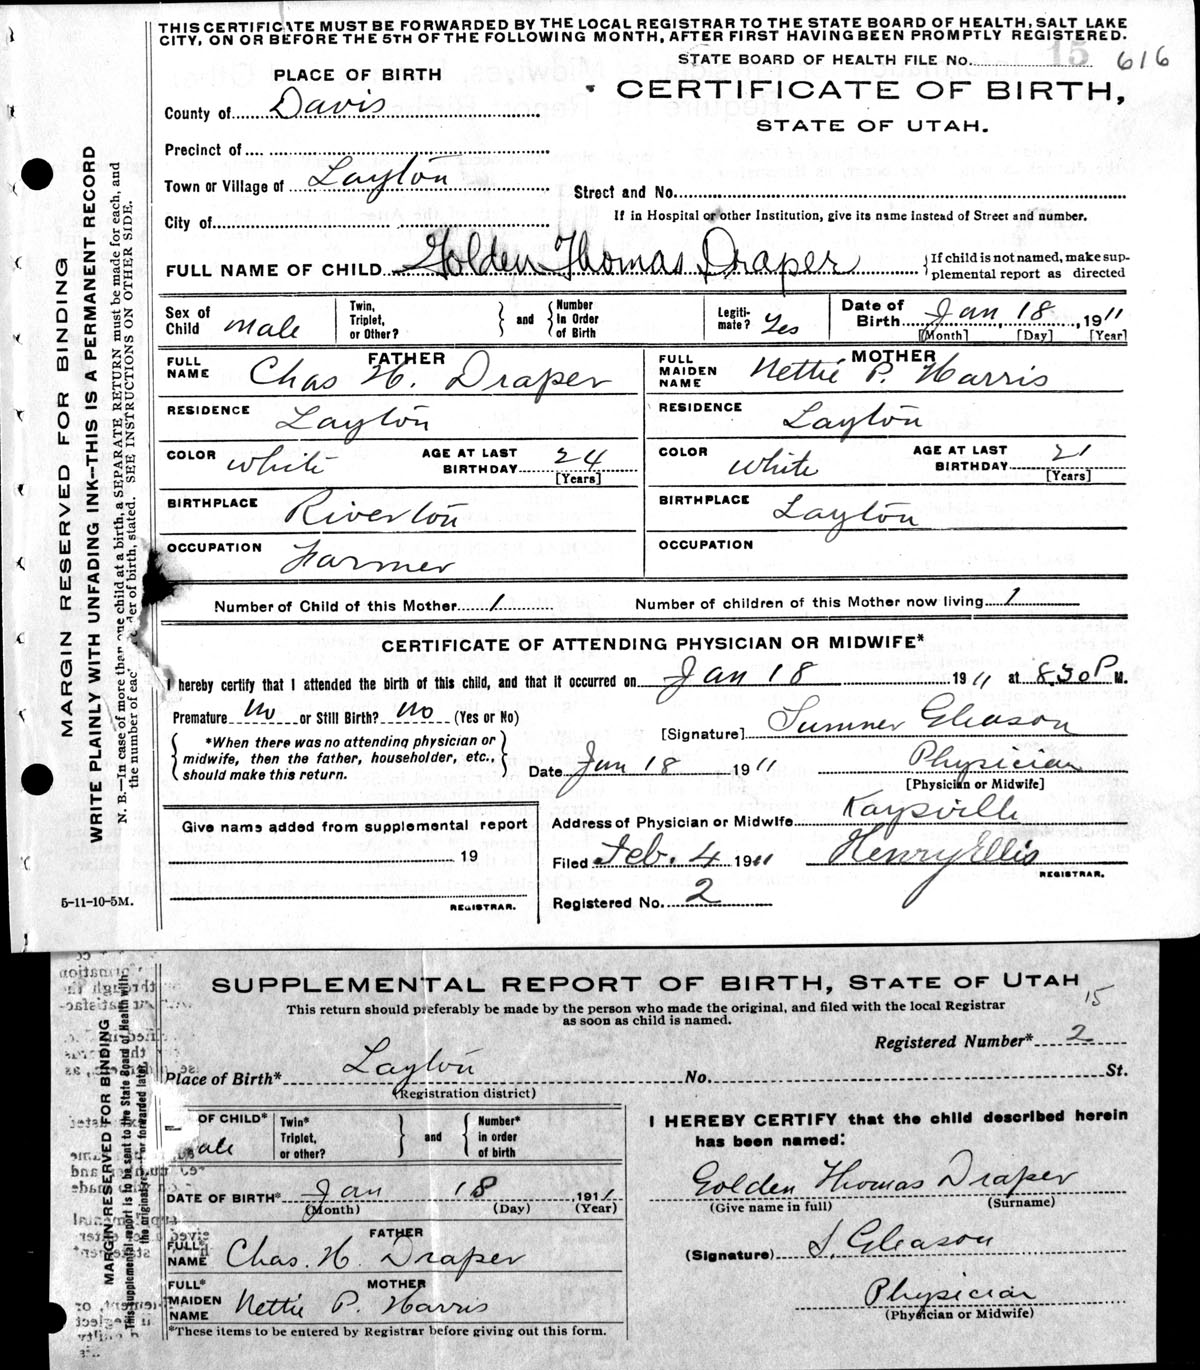 THIS CERTIFICATE MUST BE FORWARDED BY THE LOCAL REGISTRAR TO THE STATE BOARD OF HEALTH, SALT LAKE
CITY, ON OR BEFORE THE 5TH OF THE FOLLOWING MONTH, AFTER FIRST HAVING BEEN PROMPTLY REGISTERED.
STATE BOARD OF HEALTH FILE No. 15 616
PLACE OF BIRTH
CERTIFICATE OF BIRTH,
STATE OF UTAH.
County of Davis
Precinct of
Town or Village of Layton
Street and No.
City of
If in Hospital or other Institution, give its name instead of Street and number.
FULL NAME OF CHILD Golden Thomas Draper
{If child is not named, make sup-
plemental report as directed
Sex of Child male
Twin, Triplet, or Other? } and { Number in Order of Birth
Legiti-mate? Yes
Date of Birth Jan 18, 1911
[Month] [Day] [Year]
FATHER
FULL NAME Chas H. Draper
MOTHER
FULL MAIDEN NAME Nettie P. Harris
RESIDENCE Layton
RESIDENCE Layton
COLOR White AGE AT LAST BIRTHDAY 24 [Years]
COLOR White AGE AT LAST BIRTHDAY 21 [Years]
BIRTHPLACE Riverton
BIRTHPLACE Layton
OCCUPATION Farmer
OCCUPATION
Number of Child of this Mother 1 Number of children of this Mother now living 1
CERTIFICATE OF ATTENDING PHYSICIAN OR MIDWIFE*
I hereby certify that I attended the birth of this child, and that it occurred on Jan 18 1911 at 8.30 P M.
Premature No or Still Birth? No (Yes or No)
[Signature] Sumner Gleason
{ *When there was no attending physician or
midwife, then the father, householder, etc.,
should make this return. }
Date Jan 18 1911 Physician
[Physician or Midwife]
Give name added from supplemental report
19
REGISTRAR.
Address of Physician or Midwife Kaysville
Filed Feb. 4 1911 Henry Ellis
REGISTRAR.
Registered No. 2
5-11-10-5M.
MARGIN RESERVED FOR BINDING
WRITE PLAINLY WITH UNFADING INK--THIS IS A PERMANENT RECORD
N. B.—In case of more than one child at a birth, a SEPARATE RETURN must be made for each, and
the number of each order of birth, stated. SEE INSTRUCTIONS ON OTHER SIDE.
SUPPLEMENTAL REPORT OF BIRTH, STATE OF UTAH
15
This return should preferably be made by the person who made the original, and filed with the local Registrar
as soon as child is named.
Registered Number* 2
Place of Birth* Layton No. St.
(Registration district)
OF CHILD* ale
Twin* Triplet, or other? } and { Number* in order of birth
DATE OF BIRTH* Jan 18 1911
(Month) (Day) (Year)
FATHER
FULL* NAME Chas. H. Draper
MOTHER
FULL* MAIDEN NAME Nettie P. Harris
*These items to be entered by Registrar before giving out this form.
I HEREBY CERTIFY that the child described herein
has been named:
Golden Thomas Draper
(Give name in full) (Surname)
(Signature) S. Gleason
Physician
(Physician or Midwife)
MARGIN RESERVED FOR BINDING
This supplemental report is to be sent to the State Board of Health with
the original or forwarded later.